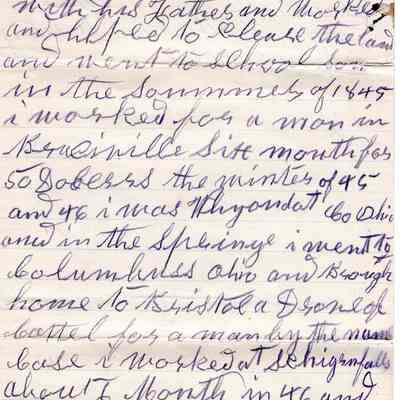 with his Father and Worked
and helped to Clease the land
and went to school som
in the Sommers of 1845
i worked for a man in
Braceiville Six mouth for
50 Dolerss the winter of 45
and 46 i was Whyondat Co Ohio
and in the Springe i went to
Columbuss Ohio and Brough
home to Bristol a Drove of
Cattel for a man by the name
Case i worked at Schigrnfalls
about 7 Month in 46 and